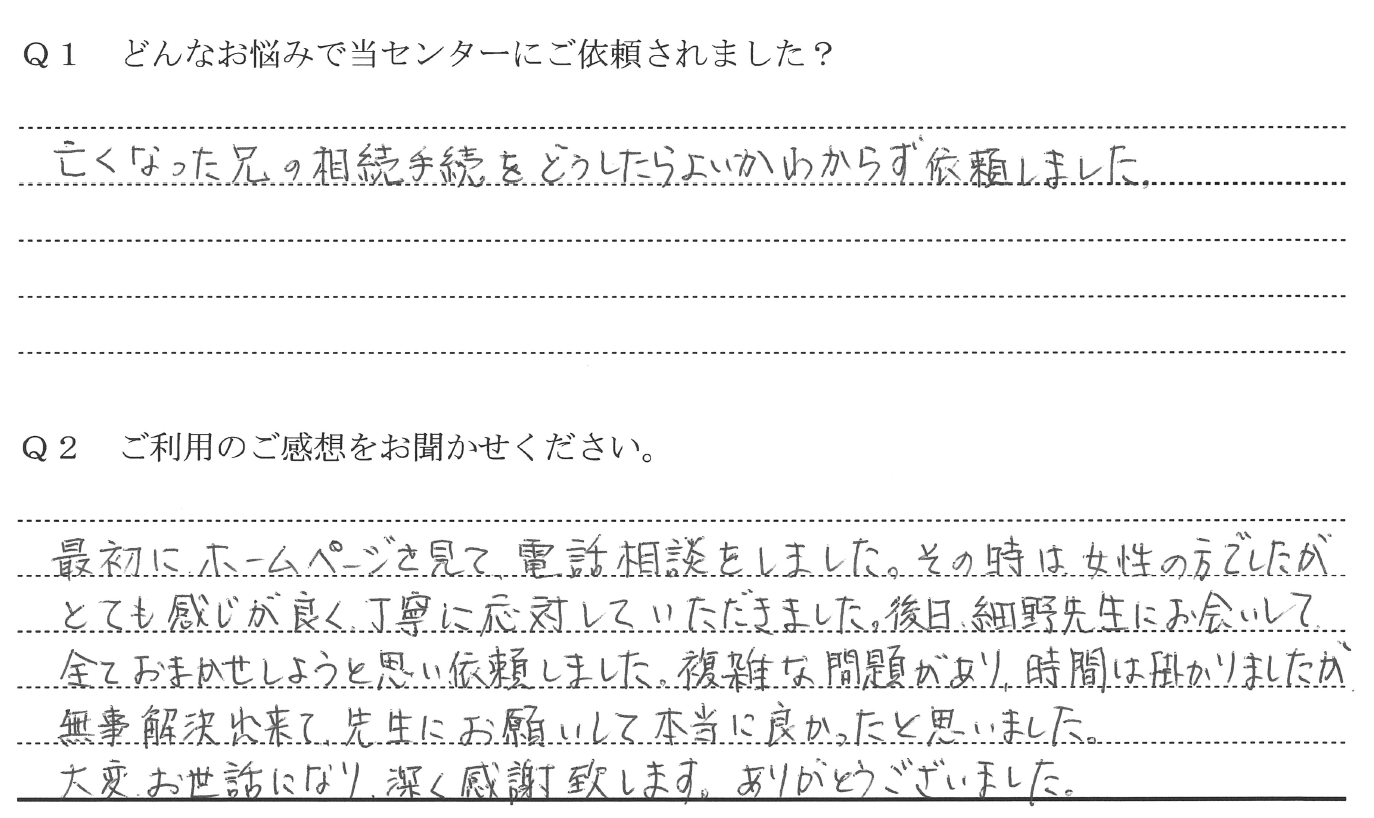 Q1 どんなお悩みで当センターにご依頼されました？
亡くなった兄の相続手続をどうしたらよいかわからず依頼しました。
Q2 ご利用のご感想をお聞かせください。
最初に、ホームページを見て、電話相談をしました。その時は女性の方でしたが
とても感じが良く、丁寧に応対していただきました。後日、細野先生にお会いして、
全ておまかせしようと思い依頼しました。複雑な問題があり、時間は掛かりましたが
無事解決出来て、先生にお願いして本当に良かったと思いました。
大変、お世話になり、深く感謝致します。ありがとうございました。